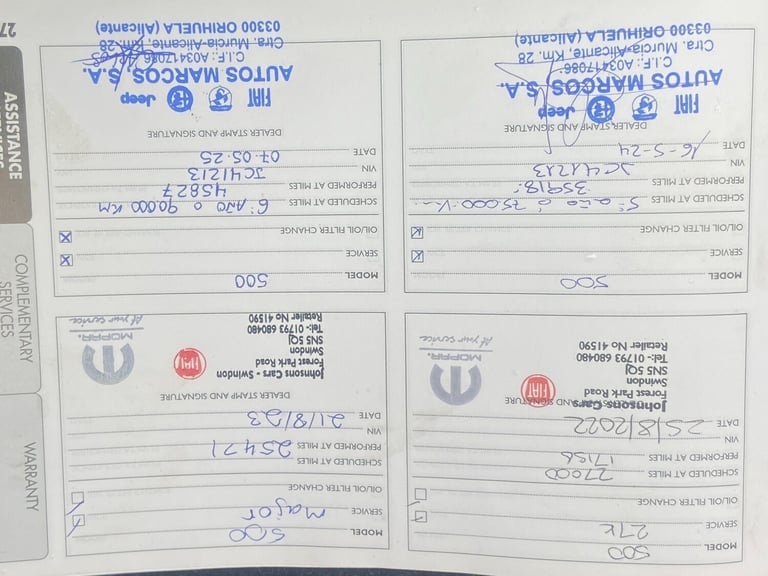 MODEL 500
SERVICE 27k
OIL/OIL FILTER CHANGE
SCHEDULED AT MILES 27000
PERFORMED AT MILES 17156
VIN
DATE 25/8/2022
DEALER STAMP AND SIGNATURE
Johnsons Cars
Forest Park Road
Swindon
SN5 5QJ
Tel:- 01793 680480
Retailer No 41590
FIAT
MOPAR.
At your service
MODEL 500
SERVICE Major
OIL/OIL FILTER CHANGE
SCHEDULED AT MILES
PERFORMED AT MILES 25471
VIN
DATE 21/8/23
DEALER STAMP AND SIGNATURE
Johnsons Cars - Swindon
Forest Park Road
Swindon
SN5 5QJ
Tel:- 01793 680480
Retailer No 41590
FIAT
MOPAR.
At your service
MODEL 500
SERVICE
OIL/OIL FILTER CHANGE
SCHEDULED AT MILES 5º año ó 75.000 Km
PERFORMED AT MILES 35918
VIN JC41213
DATE 16-5-24
DEALER STAMP AND SIGNATURE
FIAT Jeep
AUTOS MARCOS, S.A.
C.I.F.: A03417086
Ctra. Murcia-Alicante, Km. 28
03300 ORIHUELA (Alicante)
MODEL 500
SERVICE
OIL/OIL FILTER CHANGE
SCHEDULED AT MILES 6º AÑO O 90.000 KM
PERFORMED AT MILES 45827
VIN JC41213
DATE 07.05.25
DEALER STAMP AND SIGNATURE
FIAT Jeep
AUTOS MARCOS, S.A.
C.I.F.: A03417086
Ctra. Murcia-Alicante, Km. 28
03300 ORIHUELA (Alicante)
27
ASSISTANCE
SERVICES
COMPLEMENTARY
SERVICES
WARRANTY